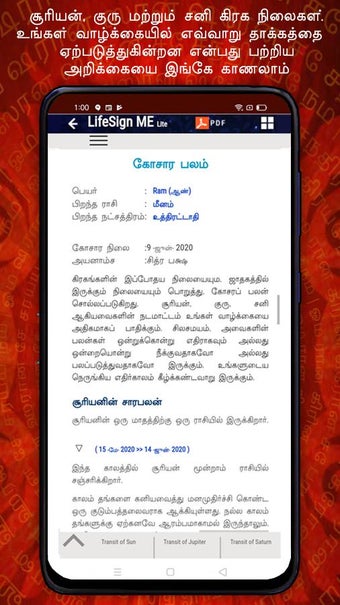 சூரியன், குரு மற்றும் சனி கிரக நிலைகள்.
உங்கள் வாழ்க்கையில் எவ்வாறு தாக்கத்தை
ஏற்படுத்துகின்றன என்பது பற்றிய
அறிக்கையை இங்கே காணலாம்
1:00
LifeSign ME Lite PDF
கோசார பலம்
பெயர் : Ram (ஆண்)
பிறந்த ராசி : மீனம்
பிறந்த நட்சத்திரம் : உத்திரட்டாதி
கோசார நிலை :9-ஜுன்-2020
அயனாம்ச :சித்ர பக்ஷ
கிரகங்களின் இப்போதய நிலையையும், ஜாதகத்தில்
இருக்கும் நிலையையும் பொறுத்து, கோசரப் பலன்
சொல்லப்படுகிறது. சூரியன், குரு, சனி
ஆகியவைகளின் நடமாட்டம் உங்கள் வாழ்க்கையை
அதிகமாகப் பாதிக்கும். சிலசமயம், அவைகளின்
பலன்கள் ஒன்றுக்கொன்று எதிராகவும் அல்லது
ஒன்றையொன்று நீக்குவதாகவோ அல்லது
பலப்படுத்துவதாகவோ இருக்கும். உங்களுடைய
நெருங்கிய எதிர்காலம் கீழ்க்கண்டவாறு இருக்கும்.
சூரியனின் சாரபலன்
சூரியனின் ஒரு மாதத்திற்கு ஒரு ராசியில் இருக்கிறார்.
▽ ( 15-மே-2020 >> 14-ஜுன்-2020 )
இந்த காலத்தில் சூரியன் மூன்றாம் ராசியில்
சஞ்சரிக்கிறார்.
காலம் தங்களை கனியவைத்து மனமுதிர்ச்சி கொண்ட
ஒரு குடும்பத்தலைவராக ஆக்கியுள்ளது. நல்ல காலம்
தங்களுக்கு ஏற்கனவே ஆரம்பமாகாமல் இருந்தாலும்,
Transit of Sun Transit of Jupiter Transit of Saturn